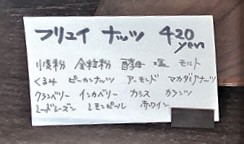 フリュイ ナッツ 420 yen
小麦粉 全粒粉 酵母 塩 モルト
くるみ ピーカンナッツ アーモンド マカダミアナッツ
クランベリー インカベリー カシス カランツ
レーズン レモンピール 赤ワイン